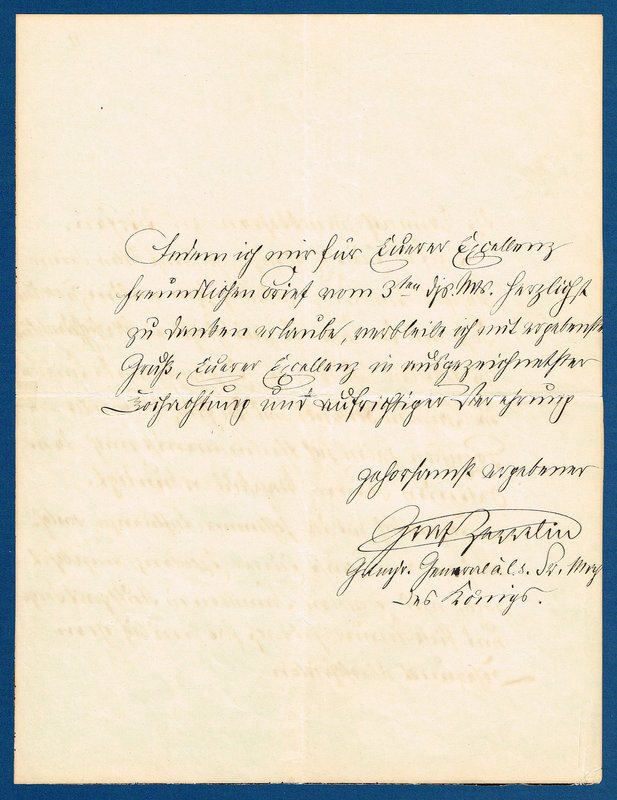 Indem ich mir für Euerer Excellenz
freundlichen Brief vom 3ten djs. Mts. herzlichst
zu danken erlaube, verbleibe ich mit ergebenstem
Gruß, Euerer Excellenz in ausgezeichnetster
Hochachtung und aufrichtiger Verehrung
gehorsamst ergebener
Graf Zeppelin
General à l. s. Sr. Maj.
des Königs.